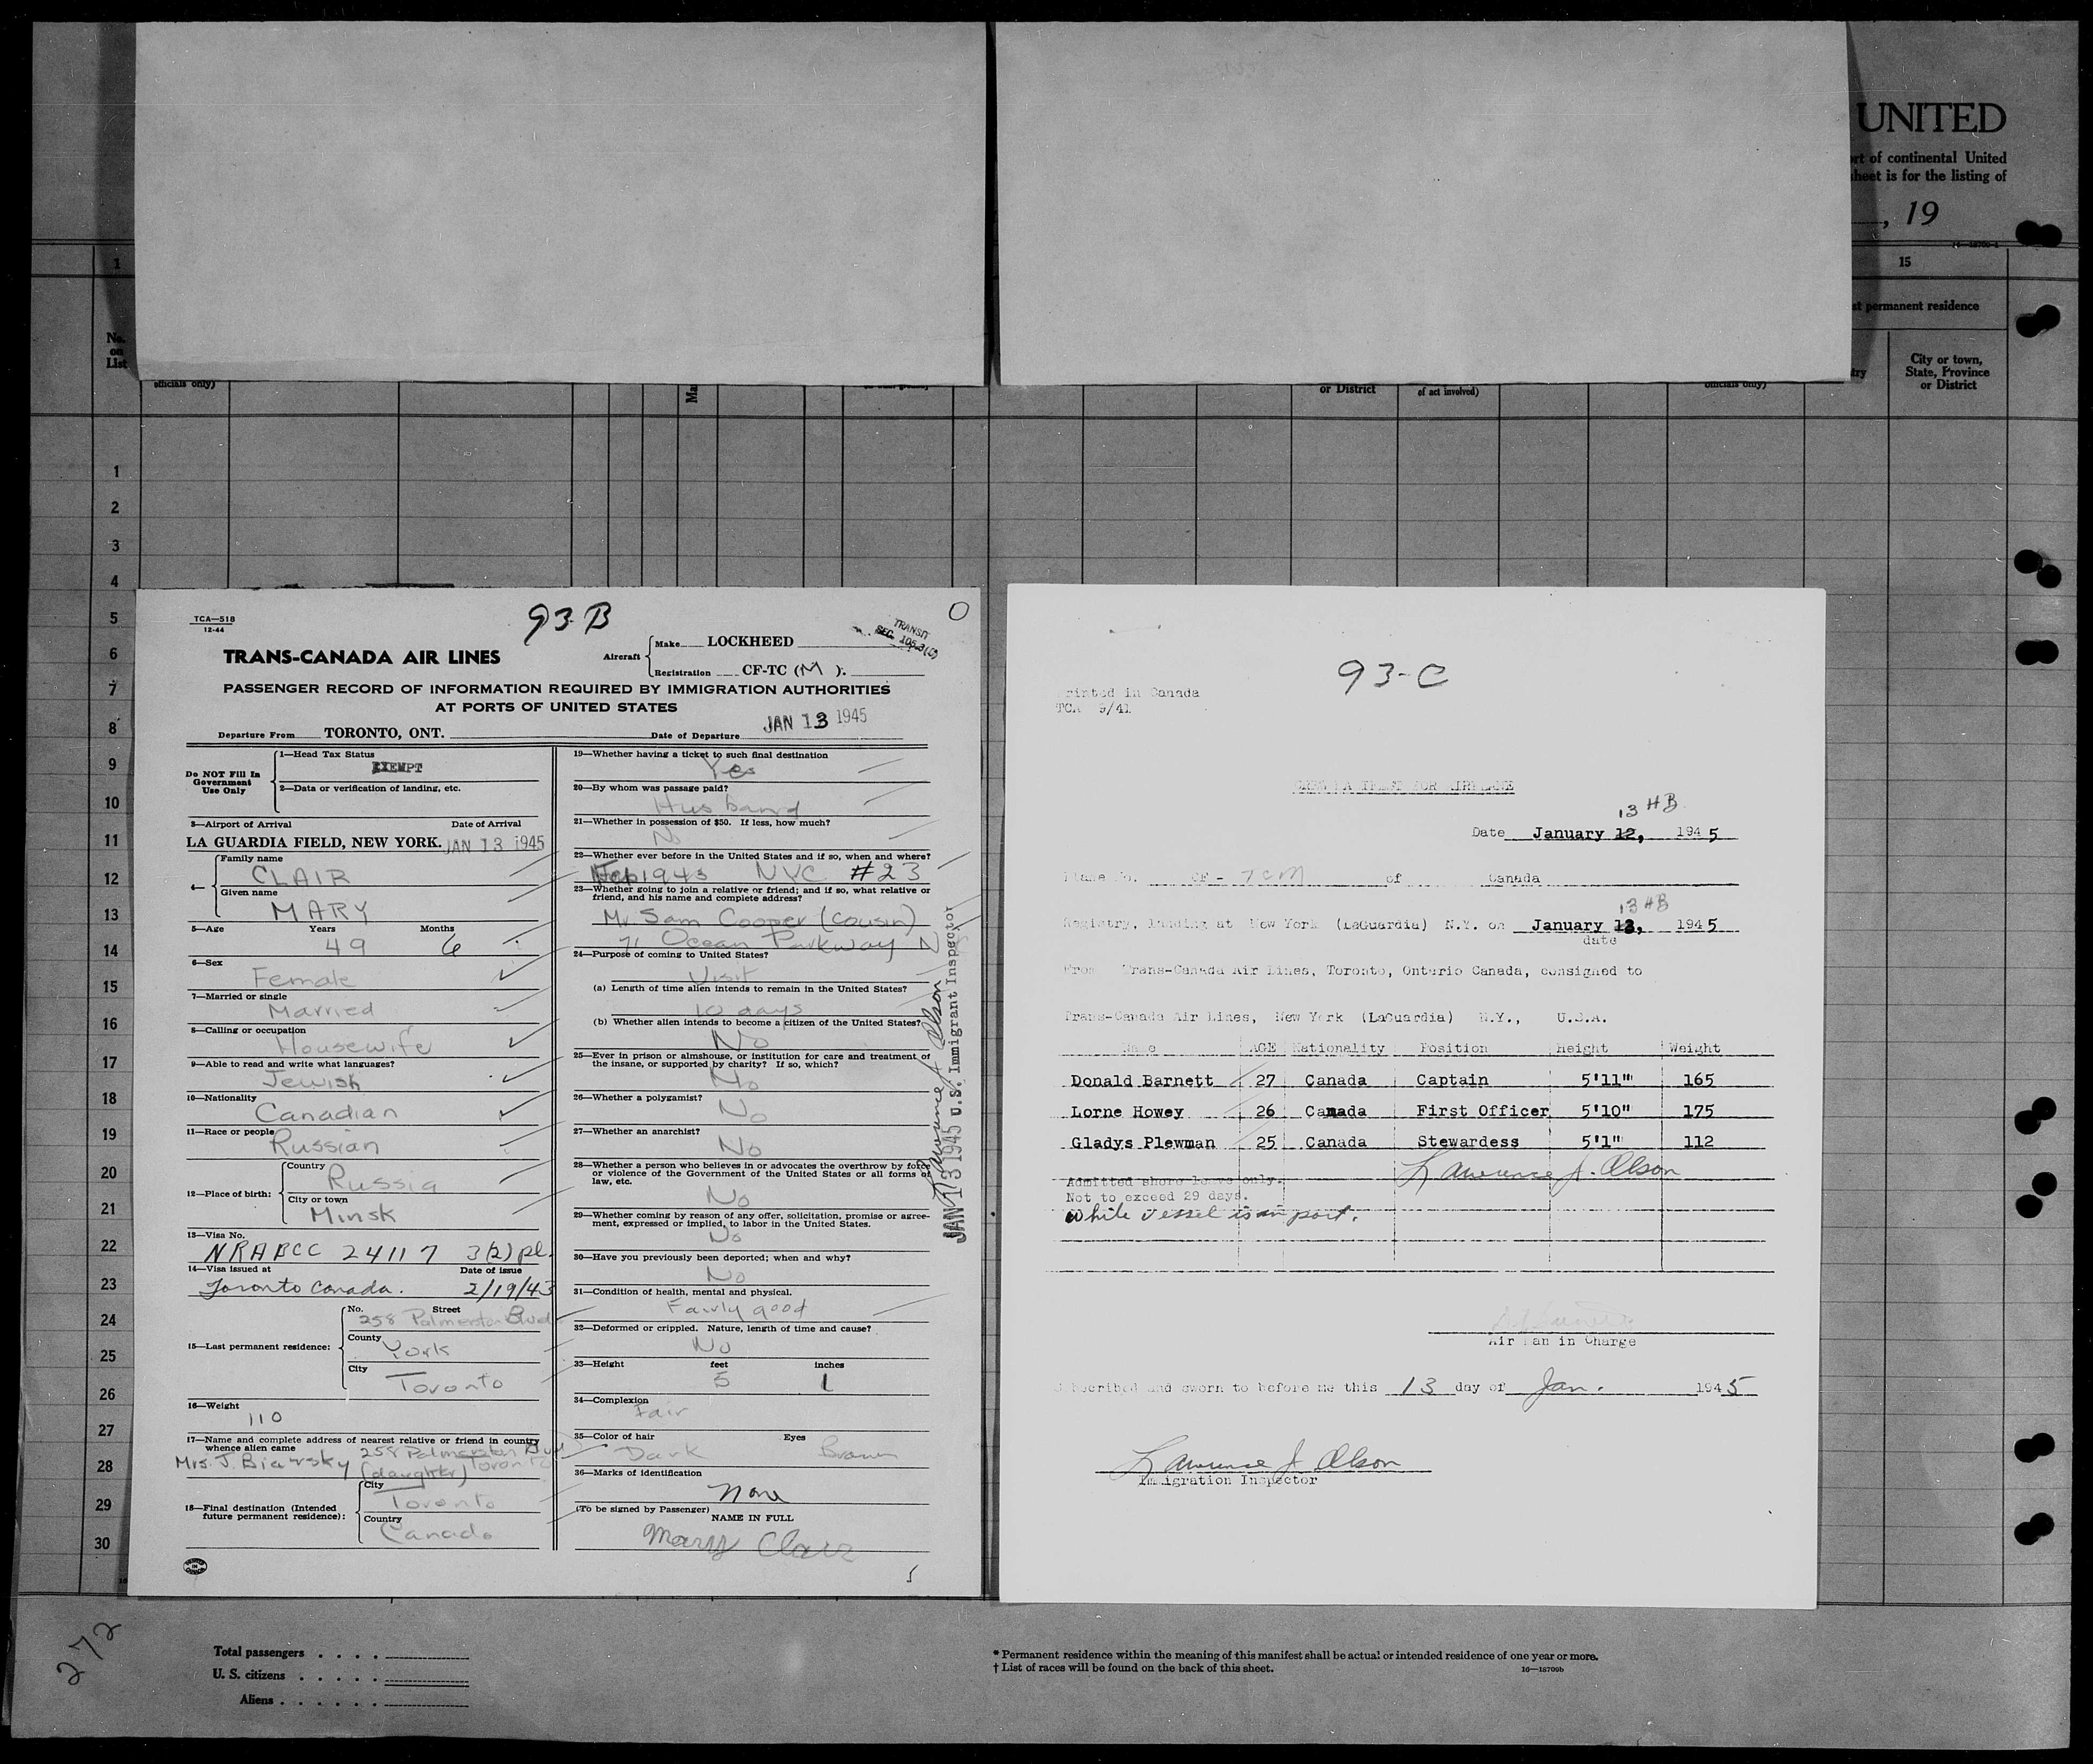 UNITED
ort of continental United
sheet is for the listing of
, 19
1
15
st permanent residence
No.
on
List
City or town,
State, Province
or District
officials only)
or District
of act involved)
officials only)
1
2
3
4
5
6
7
8
9
10
11
12
13
14
15
16
17
18
19
20
21
22
23
24
25
26
27
28
29
30
TCA—518
12-44
93-B
O
TRANSIT
SEC. 105.3(C)
TRANS-CANADA AIR LINES
Aircraft
Make LOCKHEED
Registration CF-TC (M ).
PASSENGER RECORD OF INFORMATION REQUIRED BY IMMIGRATION AUTHORITIES
AT PORTS OF UNITED STATES
Departure From TORONTO, ONT. Date of Departure JAN 13 1945
Do NOT Fill In
Government
Use Only
1—Head Tax Status
EXEMPT
2—Data or verification of landing, etc.
3—Airport of Arrival Date of Arrival
LA GUARDIA FIELD, NEW YORK. JAN 13 1945
4— Family name
CLAIR
Given name
MARY
5—Age Years Months
49 6
6—Sex
Female
7—Married or single
Married
8—Calling or occupation
Housewife
9—Able to read and write what languages?
Jewish
10—Nationality
Canadian
11—Race or people
Russian
12—Place of birth:
Country
Russia
City or town
Minsk
13—Visa No.
NRABCC 24117 3(2) pl.
14—Visa issued at Date of issue
Toronto Canada. 2/19/43
15—Last permanent residence:
No. Street
258 Palmerston Blvd
County
York
City
Toronto
16—Weight
110
17—Name and complete address of nearest relative or friend in country
whence alien came 258 Palmerston Blvd
Mrs. J. Biarsky (daughter) Toronto
18—Final destination (Intended
future permanent residence):
City
Toronto
Country
Canada
19—Whether having a ticket to such final destination
Yes
20—By whom was passage paid?
Husband
21—Whether in possession of $50. If less, how much?
No
22—Whether ever before in the United States and if so, when and where?
Feb 1943 NYC #23
23—Whether going to join a relative or friend; and if so, what relative or
friend, and his name and complete address?
Mr Sam Cooper (cousin)
71 Ocean Parkway
24—Purpose of coming to United States?
Visit
(a) Length of time alien intends to remain in the United States?
10 days
(b) Whether alien intends to become a citizen of the United States?
No
25—Ever in prison or almshouse, or institution for care and treatment of
the insane, or supported by charity? If so, which?
No
26—Whether a polygamist?
No
27—Whether an anarchist?
No
28—Whether a person who believes in or advocates the overthrow by force
or violence of the Government of the United States or all forms of
law, etc.
No
29—Whether coming by reason of any offer, solicitation, promise or agree-
ment, expressed or implied, to labor in the United States.
No
30—Have you previously been deported; when and why?
No
31—Condition of health, mental and physical.
Fairly good
32—Deformed or crippled. Nature, length of time and cause?
No
33—Height feet inches
5 1
34—Complexion
Fair
35—Color of hair Eyes
Dark Brown
36—Marks of identification
None
(To be signed by Passenger)
NAME IN FULL
Mary Clair
Lawrence J. Olson
JAN 13 1945 U.S. Immigrant Inspector
93-C
Printed in Canada
TCA 9/41
13 HB
Date January 12, 1945
Plane No. CF - TCM of Canada
13 HB
Registry, Landing at New York (LaGuardia) N.Y. on January 12, 1945
date
From Trans-Canada Air Lines, Toronto, Ontario Canada, consigned to
Trans-Canada Air Lines, New York (LaGuardia) N.Y., U.S.A.
Name AGE Nationality Position Height Weight
Donald Barnett 27 Canada Captain 5'11" 165
Lorne Howey 26 Canada First Officer 5'10" 175
Gladys Plewman 25 Canada Stewardess 5'1" 112
Lawrence J. Olson
Admitted shore leave only.
Not to exceed 29 days.
While vessel is in port.
Air Man in Charge
Subscribed and sworn to before me this 13 day of Jan. 1945
Lawrence J. Olson
Immigration Inspector
272
Total passengers . . . .
U. S. citizens . . . . .
Aliens . . . . . .
* Permanent residence within the meaning of this manifest shall be actual or intended residence of one year or more.
† List of races will be found on the back of this sheet.
16—18709b